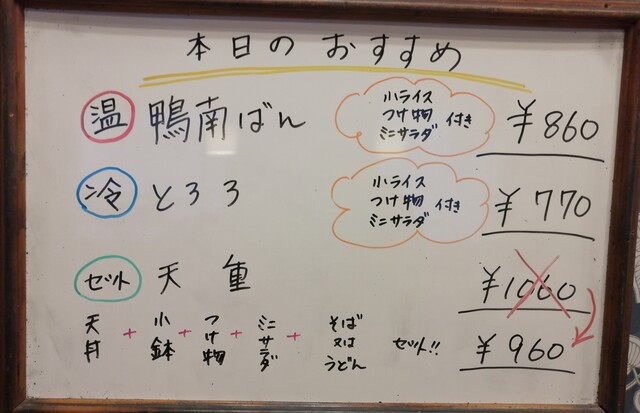 本日のおすすめ
温 鴨南ばん 小ライス つけ物 ミニサラダ 付き ¥860
冷 とろろ 小ライス つけ物 ミニサラダ 付き ¥770
セット 天重 ¥1060
天丼 + 小鉢 + つけ物 + ミニサラダ + そば又はうどん セット!! ¥960